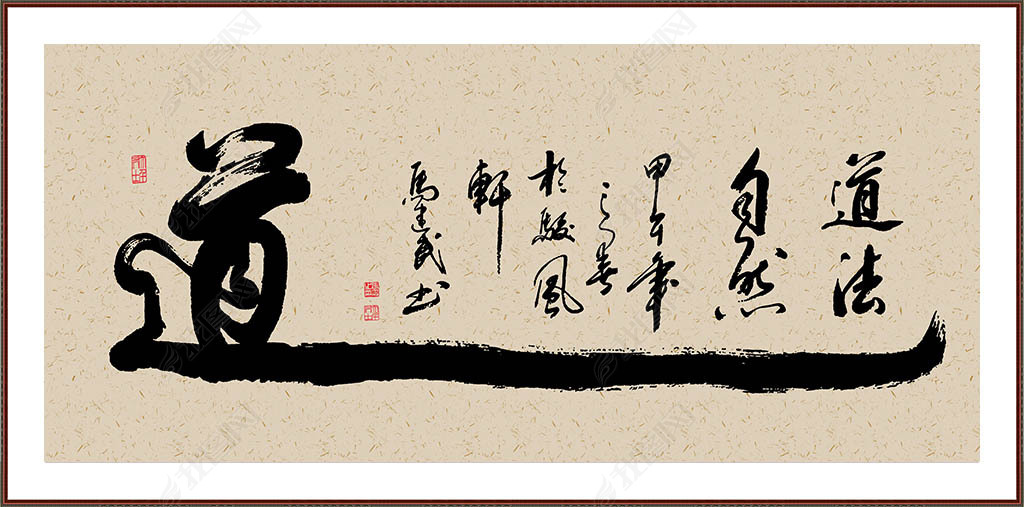 道
道法
自然
甲午年
之春
於駿風
軒
馬建民书